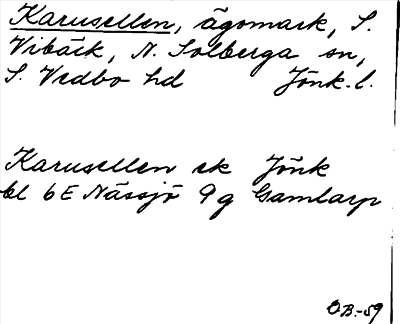 Karusellen, ägomark, S.
Vibäck, N. Solberga sn,
S. Vedbo hd Jönk. l.
Karusellen ek Jönk
bl 6E Nässjö 9g Gamlarp
O.B.-59